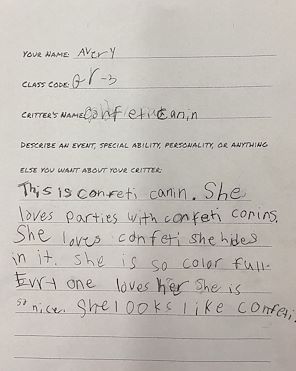 YOUR NAME: Avery
CLASS CODE: Gr-3
CRITTER'S NAME: confeti canin
DESCRIBE AN EVENT, SPECIAL ABILITY, PERSONALITY, OR ANYTHING
ELSE YOU WANT ABOUT YOUR CRITTER:
This is confeti canin. She
loves parties with confeti conins.
She loves confeti she hides
in it. she is so color full.
Evry one loves her she is
so nice. She looks like confeti